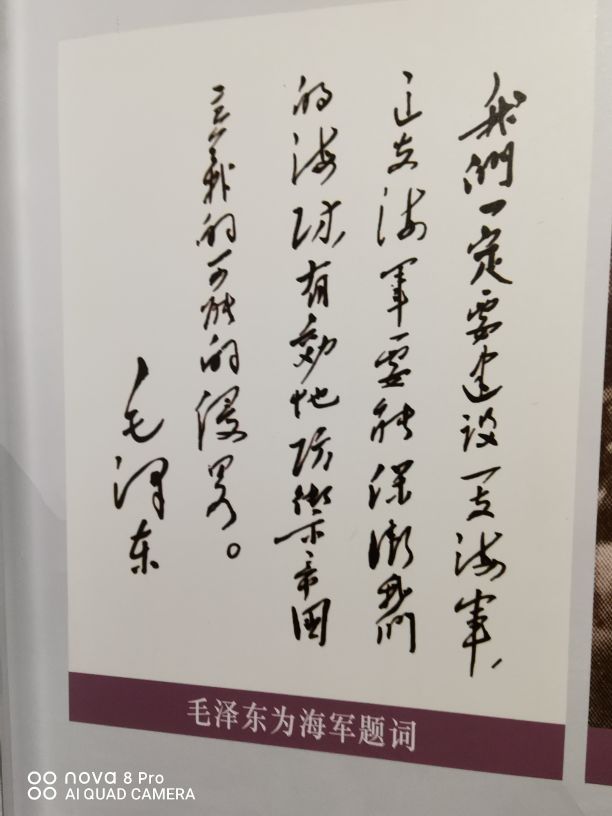 我們一定要建设一支海军，
这支海军要能保衛我們
的海防有効地防禦帝国
主義的可能的侵畧。
毛泽东
毛泽东为海军题词
nova 8 Pro
AI QUAD CAMERA